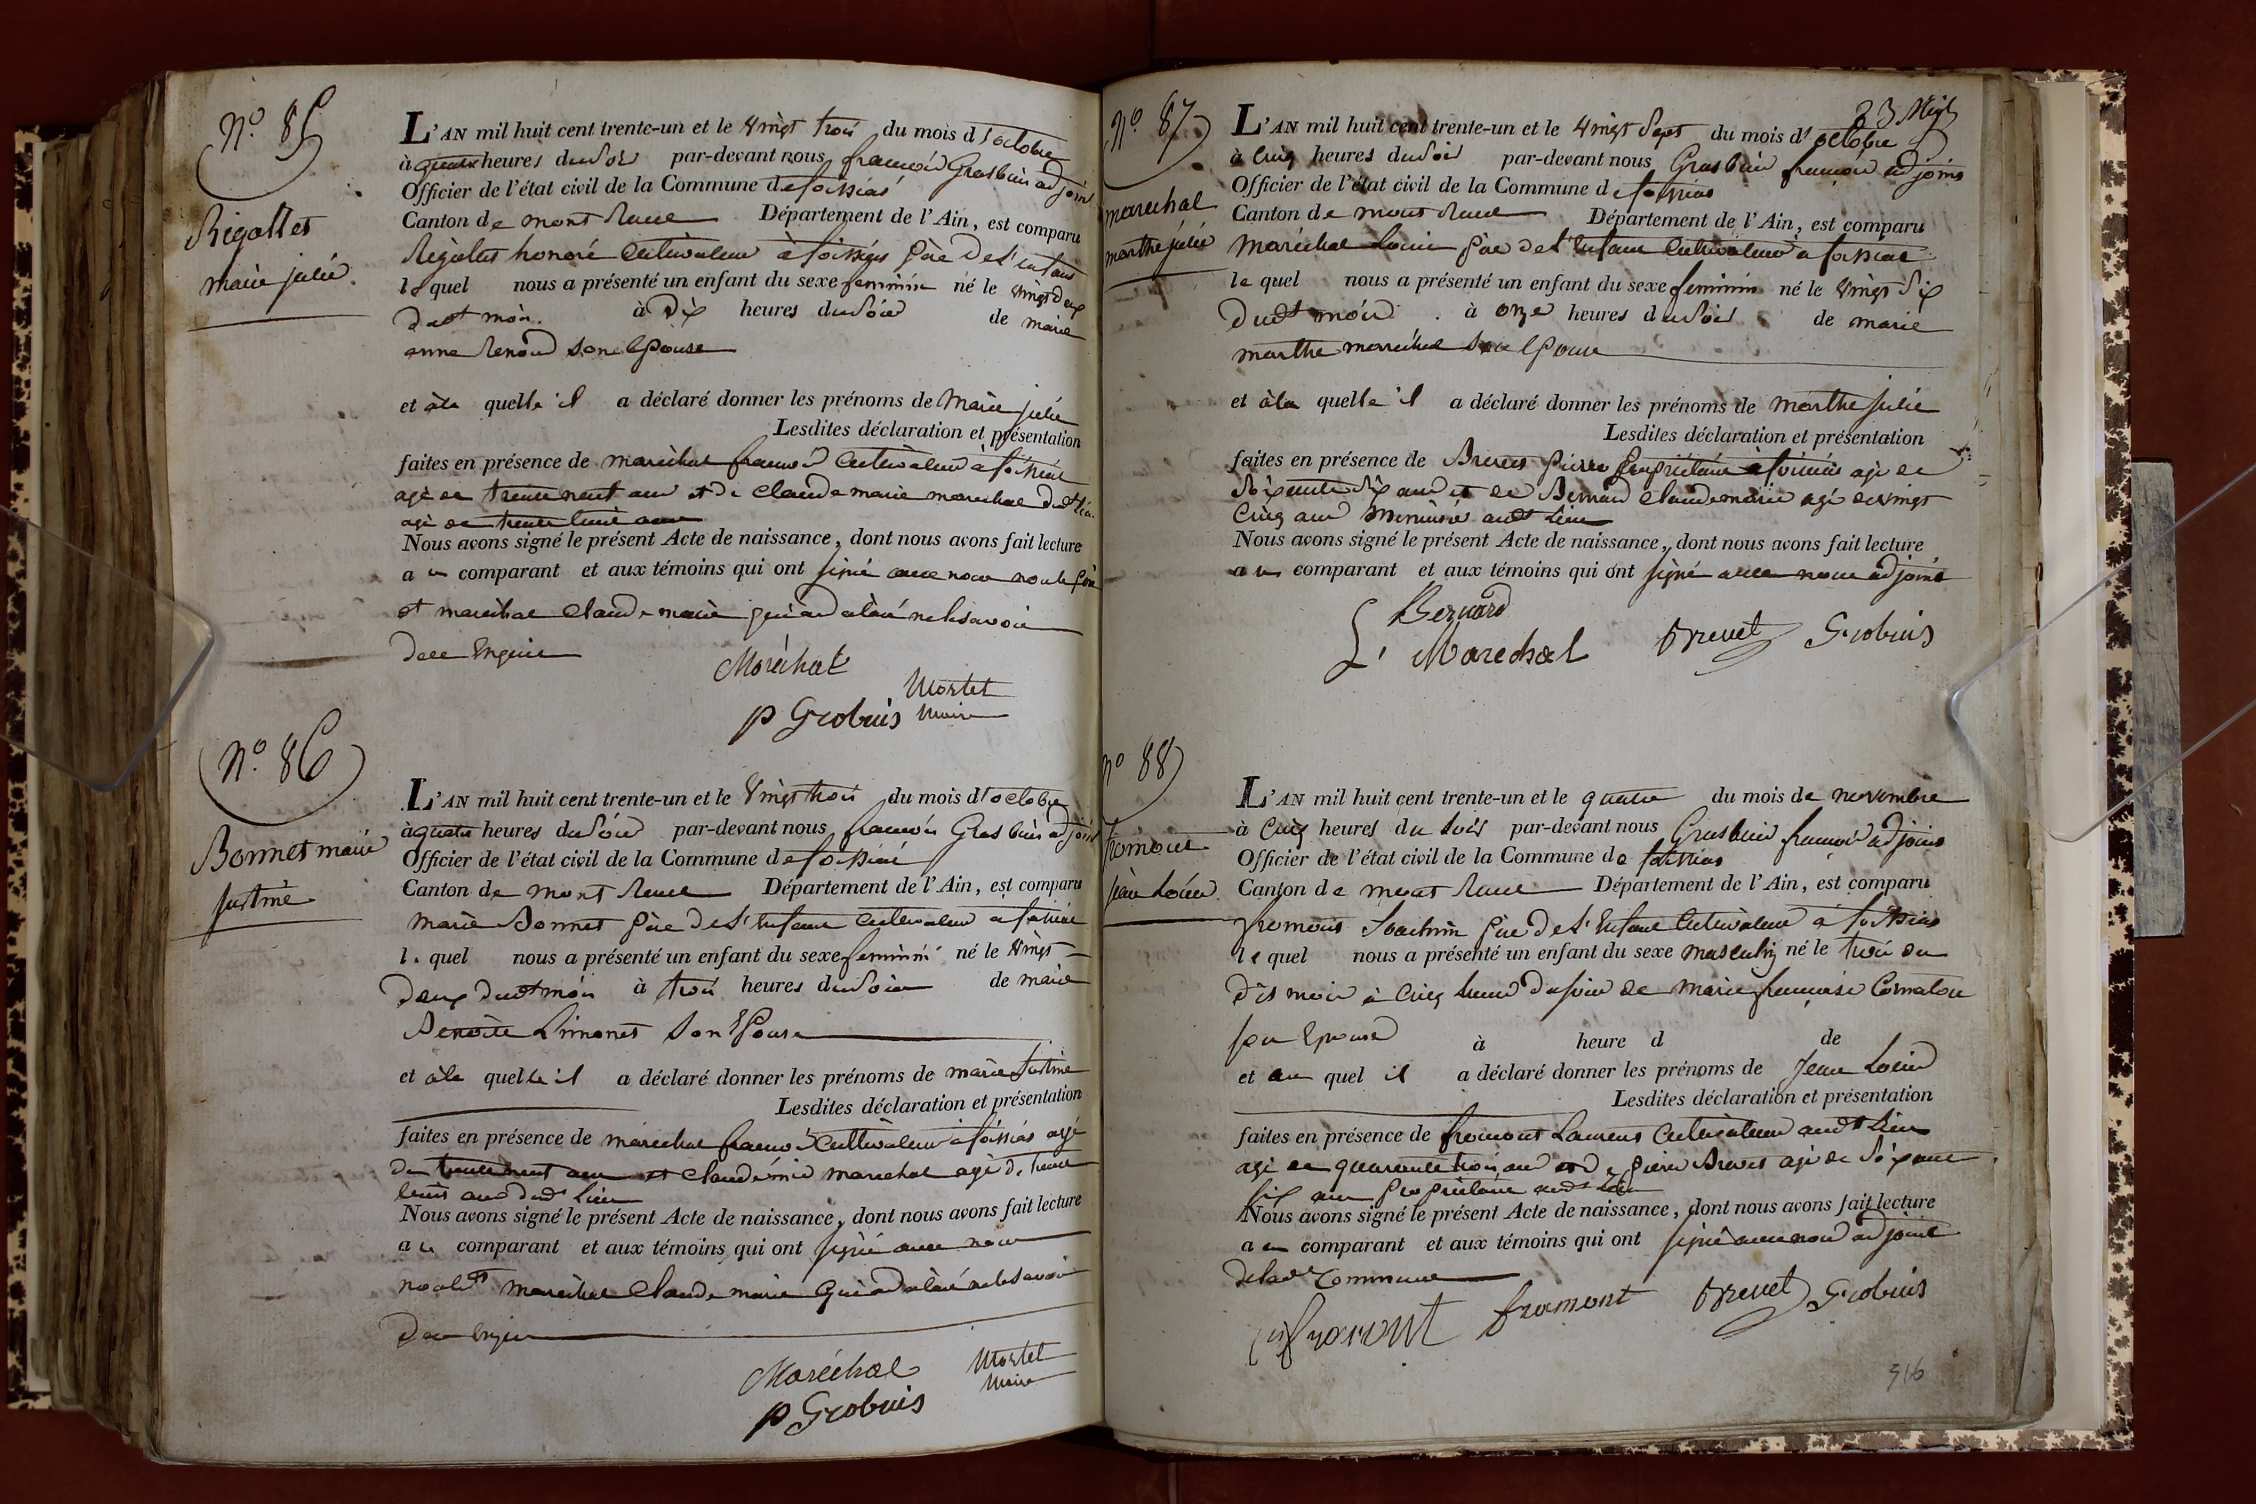 N.º 85
Rigollet
marie julie
L'AN mil huit cent trente-un et le vingt trois du mois d'octobre
à quatre heures du soir par-devant nous françois Grosbuis adjoint
Officier de l'état civil de la Commune de foissiat
Canton de montrevel Département de l'Ain, est comparu
Rigolet honoré cultivateur à foissiat père de l'enfant
lequel nous a présenté un enfant du sexe feminin né le vingt deux
dudt mois à dix heures du soir de marie
anne Renoud son epouse
et à la quelle il a déclaré donner les prénoms de Marie julie
Lesdites déclaration et présentation
faites en présence de marechal françois cultivateur à foissiat
agé de trente neuf ans et de claude marie marechal dudt lieu
agé de trente huit ans
Nous avons signé le présent Acte de naissance, dont nous avons fait lecture
au comparant et aux témoins qui ont signé avec nous non le père
et maréchal claude marie qui ont déclaré ne le savoir
de ce enquis
Maréchal
Mortel
Maire
p Grobuis
N.º 86
Bonnet marie
justine
L'AN mil huit cent trente-un et le vingt trois du mois d'octobre
à quatre heures du soir par-devant nous françois Grosbuis adjoint
Officier de l'état civil de la Commune de foissiat
Canton de montrevel Département de l'Ain, est comparu
marie Bonnet père de l'enfant cultivateur à foissiat
lequel nous a présenté un enfant du sexe feminin né le vingt
deux dudt mois à trois heures du soir de marie
Benoite Limonet son epouse
et à la quelle il a déclaré donner les prénoms de marie justine
Lesdites déclaration et présentation
faites en présence de marechal françois cultivateur à foissiat agé
de trente neuf ans et claude mie marechal agé de trente
huit ans dudt lieu
Nous avons signé le présent Acte de naissance, dont nous avons fait lecture
au comparant et aux témoins qui ont signé avec nous
non ledt marechal claude marie qui a déclaré ne le savoir
de ce enquis
Maréchal
Mortel
Maire
p Grobuis
N.º 87
marechal
marthe julie
L'AN mil huit cent trente-un et le vingt sept du mois d'octobre
à cinq heures du soir par-devant nous Grosbuis françois adjoint
Officier de l'état civil de la Commune de foissiat
Canton de montrevel Département de l'Ain, est comparu
Maréchal Louis père de l'enfant cultivateur à foissiat
lequel nous a présenté un enfant du sexe feminin né le vingt six
dudt mois à onze heures du soir de marie
marthe marechal son epouse
et à la quelle il a déclaré donner les prénoms de marthe julie
Lesdites déclaration et présentation
faites en présence de Brevet pierre propriétaire à foissiat agé de
soixante six ans et de Bernard claude marie agé de vingt
cinq ans menuisié audt lieu
Nous avons signé le présent Acte de naissance, dont nous avons fait lecture
au comparant et aux témoins qui ont signé avec nous adjoint
Bernard
L. Marechal Brevet Grobuis
N.º 88
fromont
jean Louis
L'AN mil huit cent trente-un et le quatre du mois de novembre
à cinq heures du soir par-devant nous Grosbuis françois adjoint
Officier de l'état civil de la Commune de foissiat
Canton de montrevel Département de l'Ain, est comparu
fromont Joachim père de l'enfant cultivateur à foissiat
lequel nous a présenté un enfant du sexe masculin né le trois du
dit mois à cinq heures du soir de marie françoise
son epouse à heure d de
et au quel il a déclaré donner les prénoms de Jean Louis
Lesdites déclaration et présentation
faites en présence de fromont Laurent cultivateur audt lieu
agé de quarante trois ans et de pierre Brevet agé de soixante
six ans propriétaire audt lieu
Nous avons signé le présent Acte de naissance, dont nous avons fait lecture
au comparant et aux témoins qui ont signé avec nous adjoint
de ladte commune
fromont fromont Brevet Grobuis
516